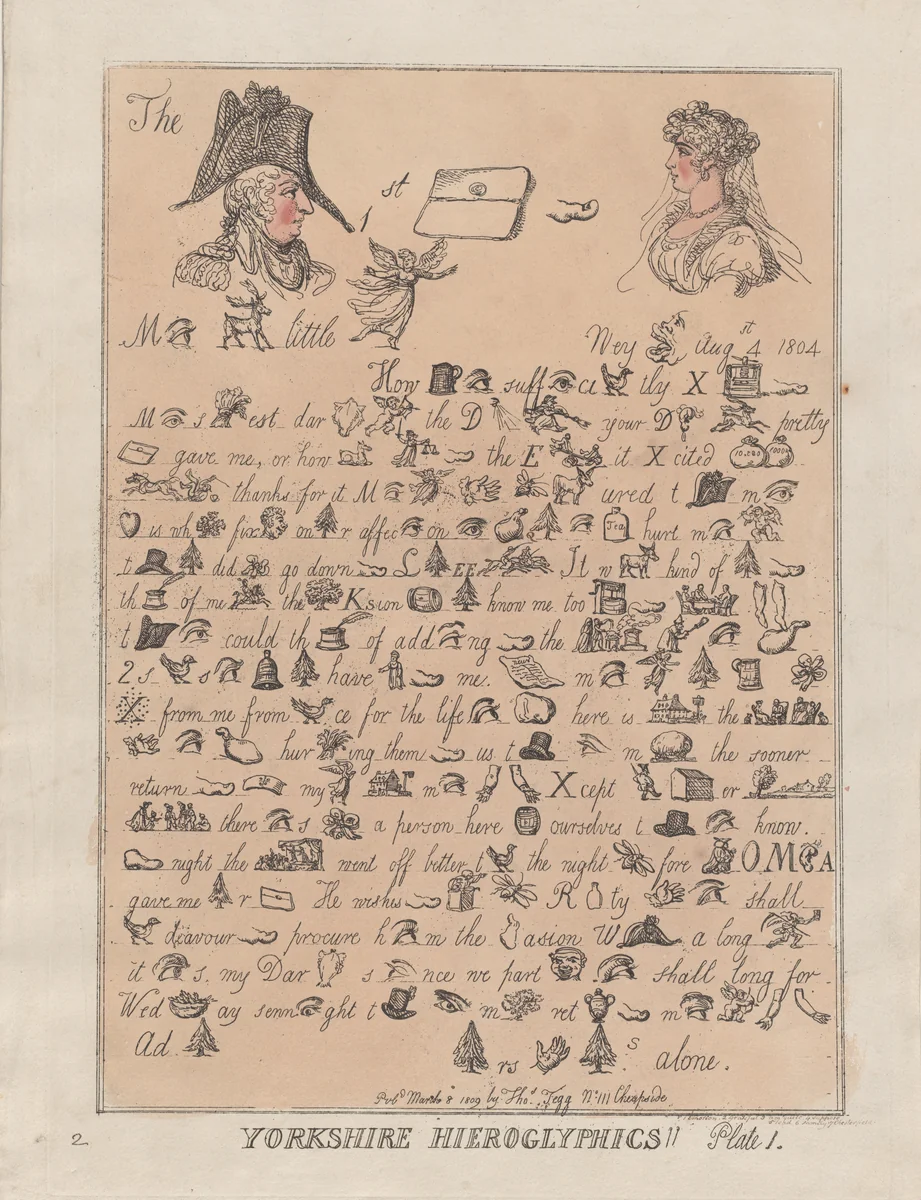 The
1 st
M little
Wey Aug st 4 1804
How suff ci tly X
M s est dar the D your D pretty
gave me, or how the E it X cited 10,000
thanks for it M ured t m
is wh fix on r affec on Tea hurt m
t did go down L EE It w kind of
th of me the K sion know me too
t could th of add ng the
2 s s have me. m
X from me from ce for the life here is the
hur ing them us t m the sooner
return my m X cept er
there s a person here ourselves t know.
night the went off better t the night fore O M A
gave me r He wishes R ty shall
deavour procure h m the asion W a long
it s, my Dar s nce we part shall long for
Wed ay senn ght t m ret m
Ad rs s alone.
Pub.d March 8 1809 by Tho.s Tegg No 111 Cheapside
2 YORKSHIRE HIEROGLYPHICS!! Plate 1.